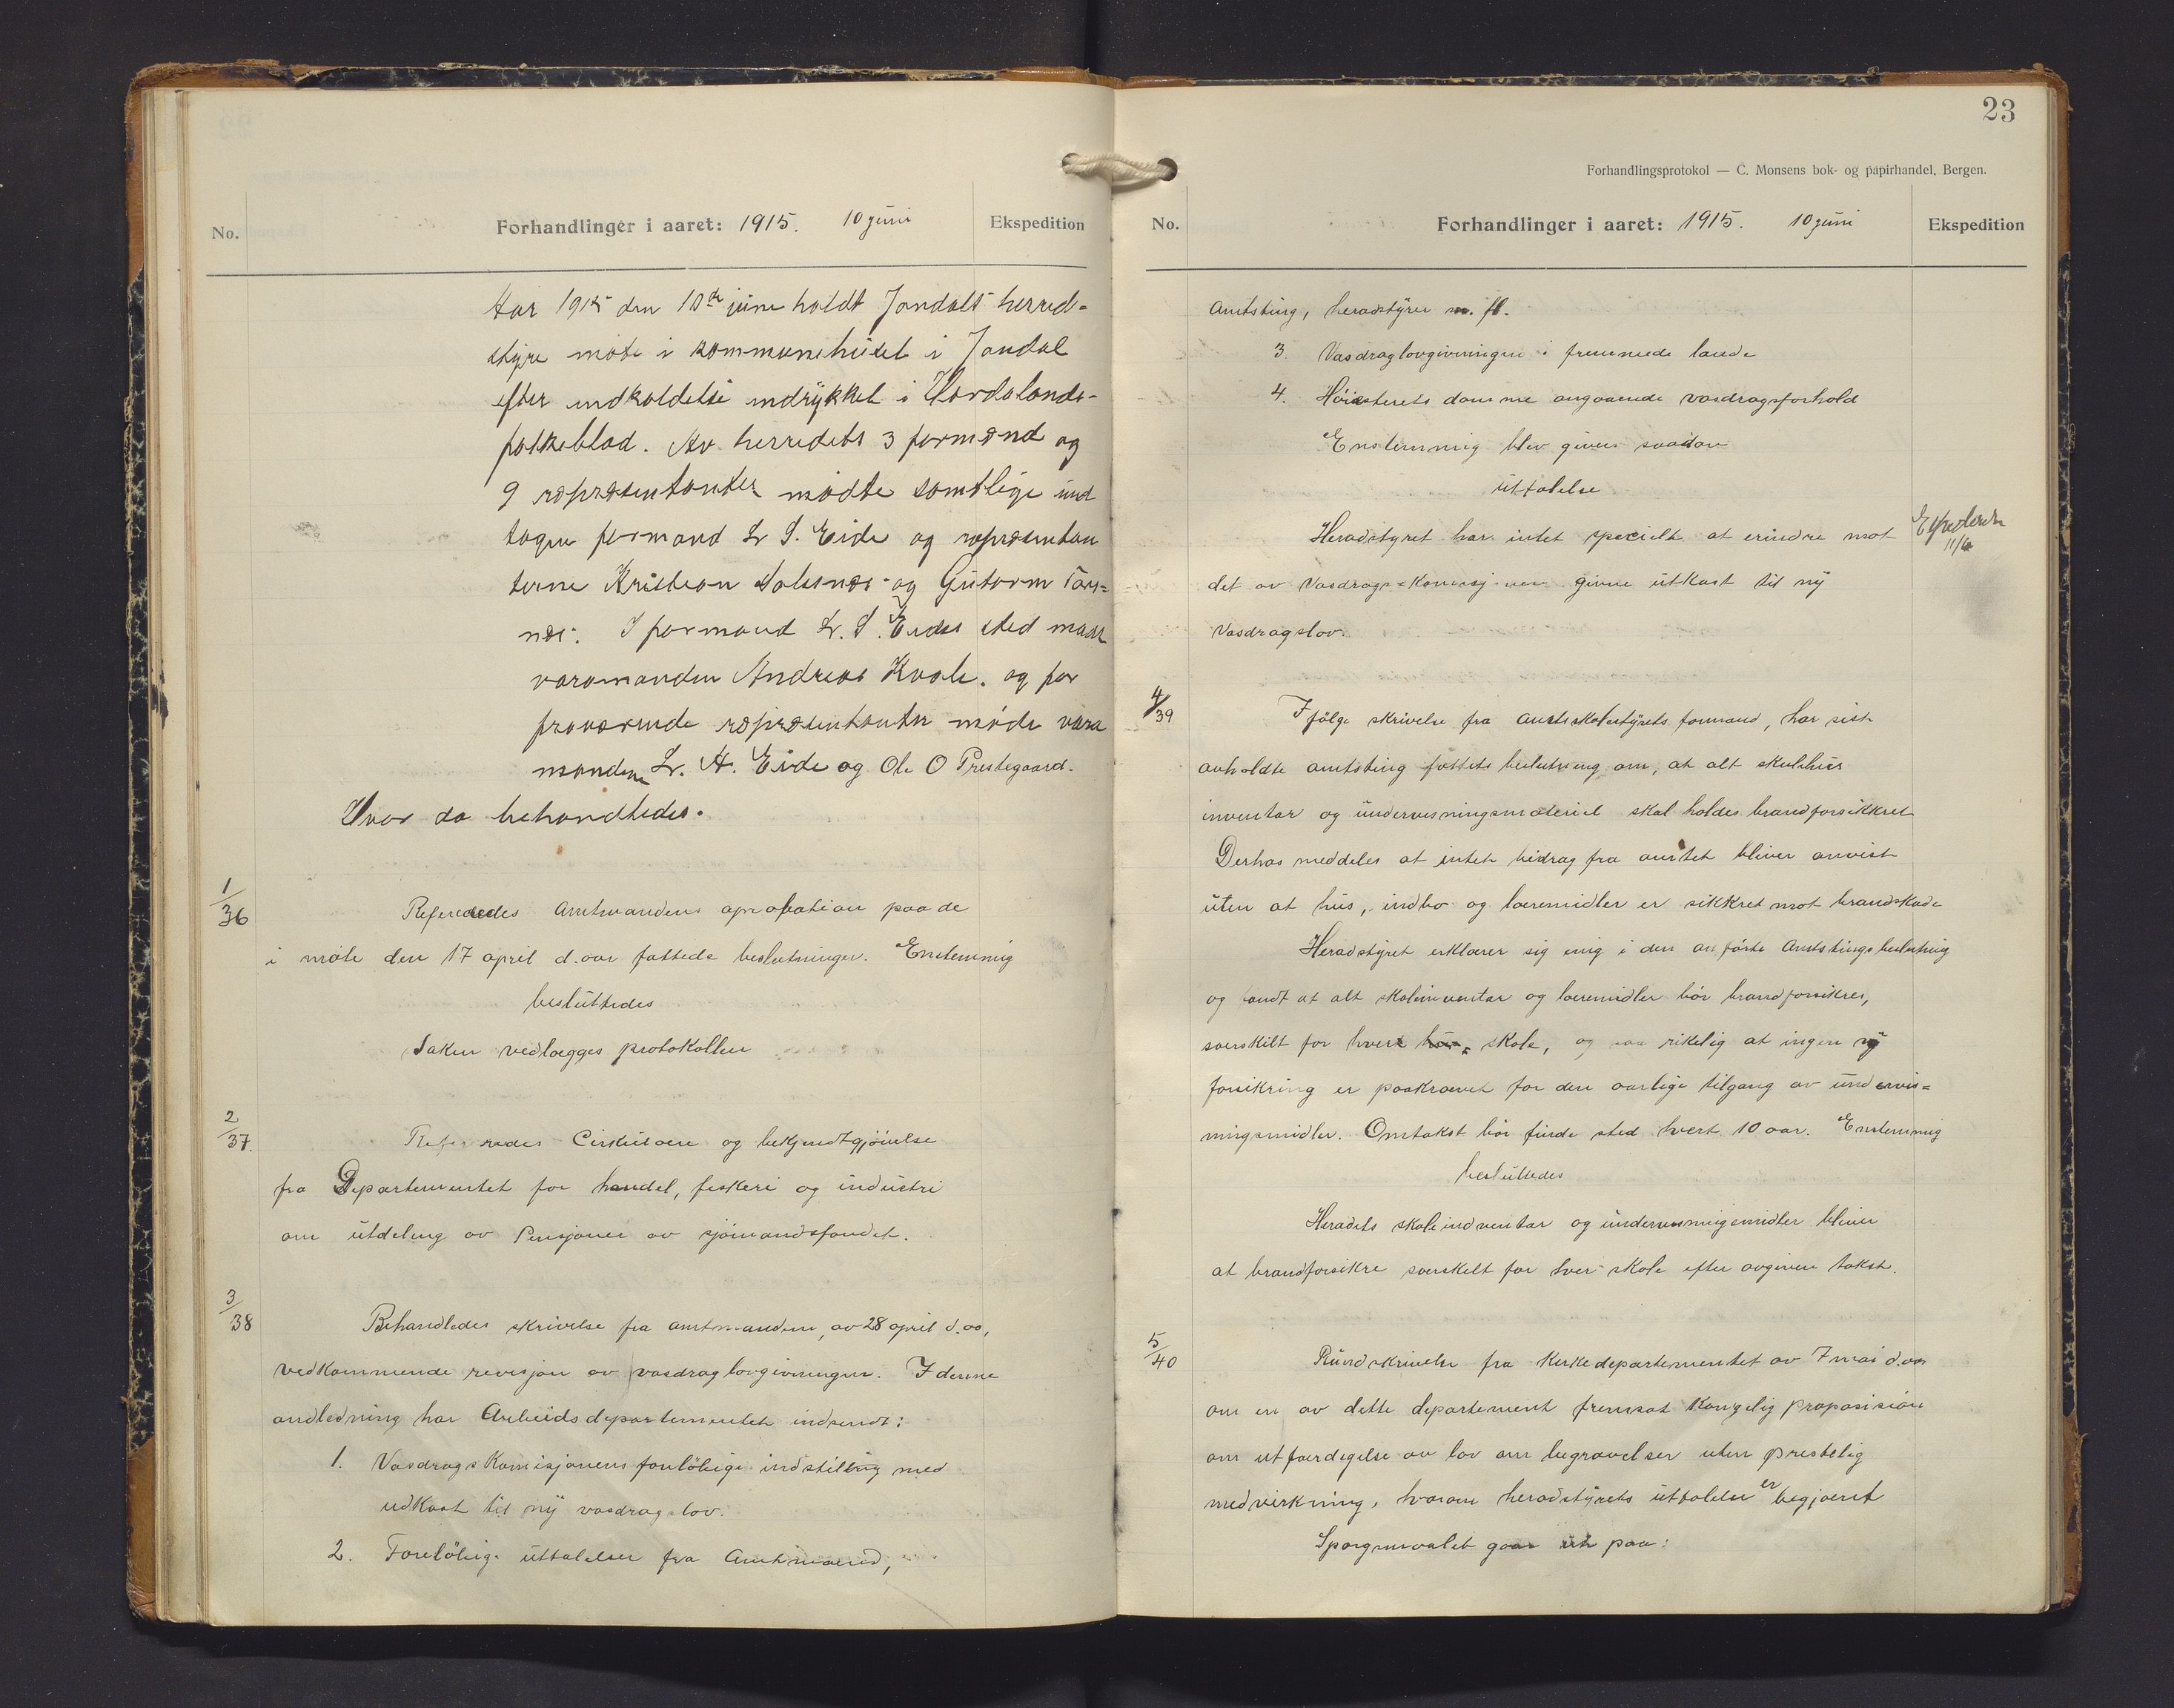 No.
Forhandlinger i aaret: 1915. 10 juni
Ekspedition
Aar 1915 den 10de juni holdt Jondals herred-
styre møte i kommunehuset i Jondal
efter indkaldelse indrykket i Hordalands-
folkeblad. Av herredets 3 formænd og
9 repræsentanter mødte samtlige und
tagen formand Lr S. Eide og repræsentan
terne Kristian Solesnæs og Guttorm Tors=
næs. I formand Lr. S. Eides sted møtte
varamanden Andreas Kvale. og for
fraværende repræsentanter mødte vara
mændene Lr. A. Eide og Ole O Prestegaard.
Hvor da behandledes.
1/36
Refereredes Amtmandens aprobation paa de
i møte den 17 april d. aar fattede beslutninger. Enstemmig
besluttedes
Saken vedlægges protokollen
2/37.
Refereredes Cirkulære og bekjendtgjörelse
fra Departementet for handel, fiskeri og industri
om utdeling av Pensjoner av sjömandsfondet.
3/38
Behandledes skrivelse fra amtmanden, av 28 april d. aa,
vedkommende revisjon av vasdraglovgivningen. I denne
andledning har Arbeidsdepartementet indsendt:
1. Vasdragskomisjonens forelöbige indstilling med
udkast til ny vasdragslov.
2. Forelöbige uttalelser fra Amtmænd,
23
Forhandlingsprotokol — C. Monsens bok- og papirhandel, Bergen.
No.
Forhandlinger i aaret: 1915. 10 juni
Ekspedition
Amtsting, heradstyrer m. fl.
3. Vasdraglovgivningen i fremmede lande
4. Höiesterets domme angaaende vasdragsforhold
Enstemmig blev given saadan
uttalelse
Heradstyret har intet specielt at erindre mot
Ekspederet
11/6
det av Vasdrags-Komisjonen givne utkast til ny
Vasdragslov.
4/39
Ifölge skrivelse fra amtsskolestyrets formand, har sist
avholdte amtsting fattet beslutning om, at alt skolehus
inventar og undervisningsmateriel skal holdes brandforsikkret
Derhos meddeles at intet bidrag fra amtet bliver anvist
uten at hus, indbo og læremidler er sikkret mot brandskade
Heradstyret erklærer sig enig i den anförte Amtstingsbeslutning
og fandt at alt skoleinventar og læremidler bör brandforsikres,
særskilt for hver skole, og saa rikelig at ingen ny
forsikring er paakrævet for den aarlige tilgang av undervis=
ningsmidler. Omtakst bör finde sted hvert 10 aar. Enstemmig
besluttedes
Heradets skoleindventar og undervisningsmidler bliver
at brandforsikre særskilt for hver skole efter avgiven takst.
5/40
Rundskrivelse fra Kirkedepartementet av 7 mai d. aa
om en av dette departement fremsat Kongelig proposision
om utfærdigelse av lov om begravelser uten prestelig
medvirkning, hvorom heradstyrets uttalelse er begjæret
Spörgsmaalet gaar ut paa: